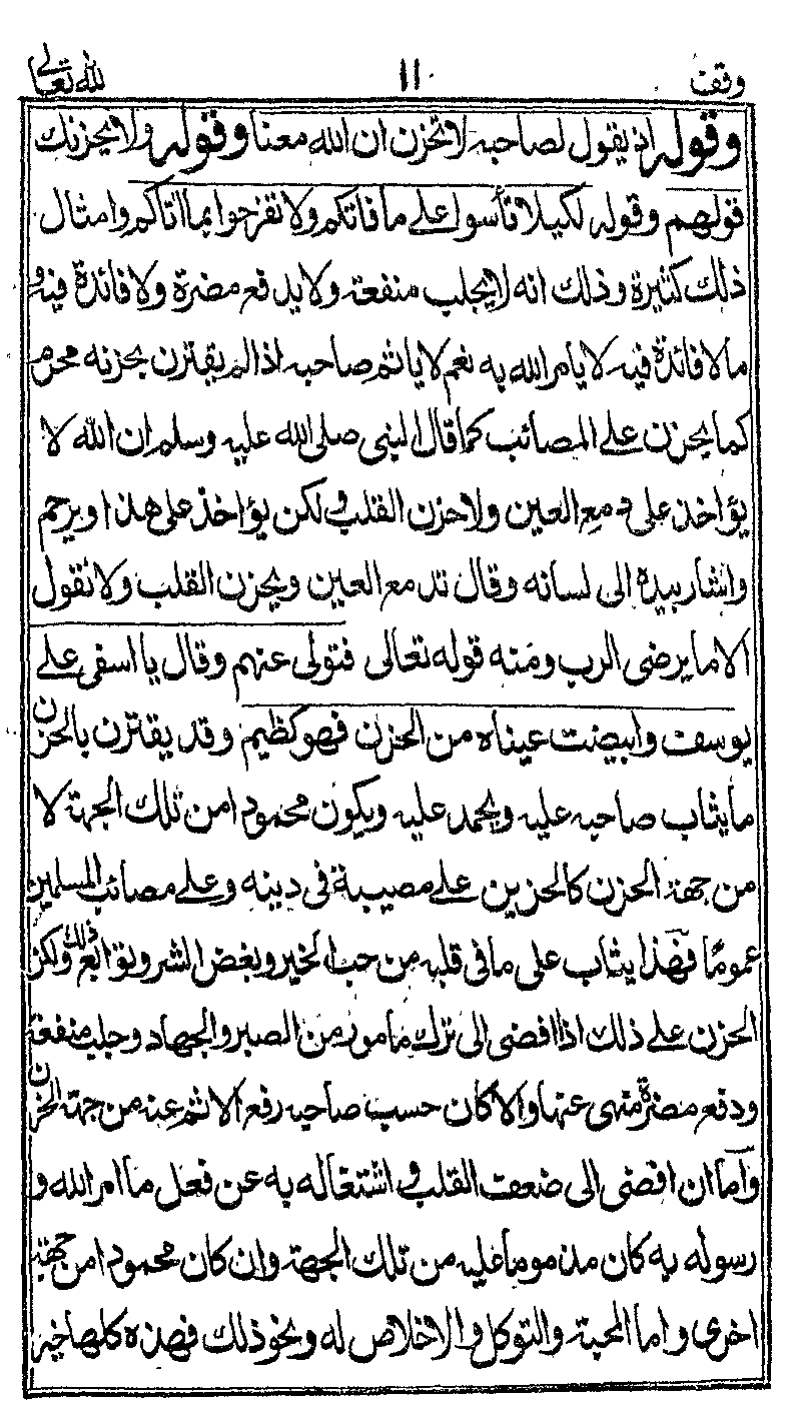 وقف ١١ لله تعالى
وقوله اذ يقول لصاحبه لا تحزن ان الله معنا وقوله ولا يحزنك
قولهم وقوله لكيلا تأسوا على ما فاتكم ولا تفرحوا بما اتاكم وامثال
ذلك كثيرة وذلك انه لا يجلب منفعة ولا يدفع مضرة ولا فائدة فيه و
ما لا فائدة فيه لا يامر الله به نعم لا ياثم صاحبه اذا لم يقترن بحزنه محرم
كما يحزن على المصائب كما قال النبى صلى الله عليه وسلم ان الله لا
يؤاخذ على دمع العين ولا حزن القلب و لكن يؤاخذ على هذا او يرحم
واشار بيده الى لسانه وقال تدمع العين ويحزن القلب ولا نقول
الا ما يرضى الرب ومنه قوله تعالى فتولى عنهم وقال يا اسفى على
يوسف وابيضت عيناه من الحزن فهو كظيم وقد يقترن بالحزن
ما يثاب صاحبه عليه ويحمد عليه ويكون محمودا من تلك الجهة لا
من جهة الحزن كالحزين على مصيبة فى دينه وعلى مصائب المسلمين
عموما فهذا يثاب على ما فى قلبه من حب الخير وبغض الشر وتوابع ذلك ولكن
الحزن على ذلك اذا افضى الى ترك مامور من الصبر والجهاد وجلب منفعة
ودفع مضرة منهى عنها والا كان حسب صاحبه رفع الاثم عنه من جهة الحزن
واما ان افضى الى ضعف القلب و اشتغاله به عن فعل ما امر الله و
رسوله به كان مذموما عليه من تلك الجهة وان كان محمودا من جهة
اخرى واما المحبة والتوكل والاخلاص له ونحو ذلك فهذه كلها خير